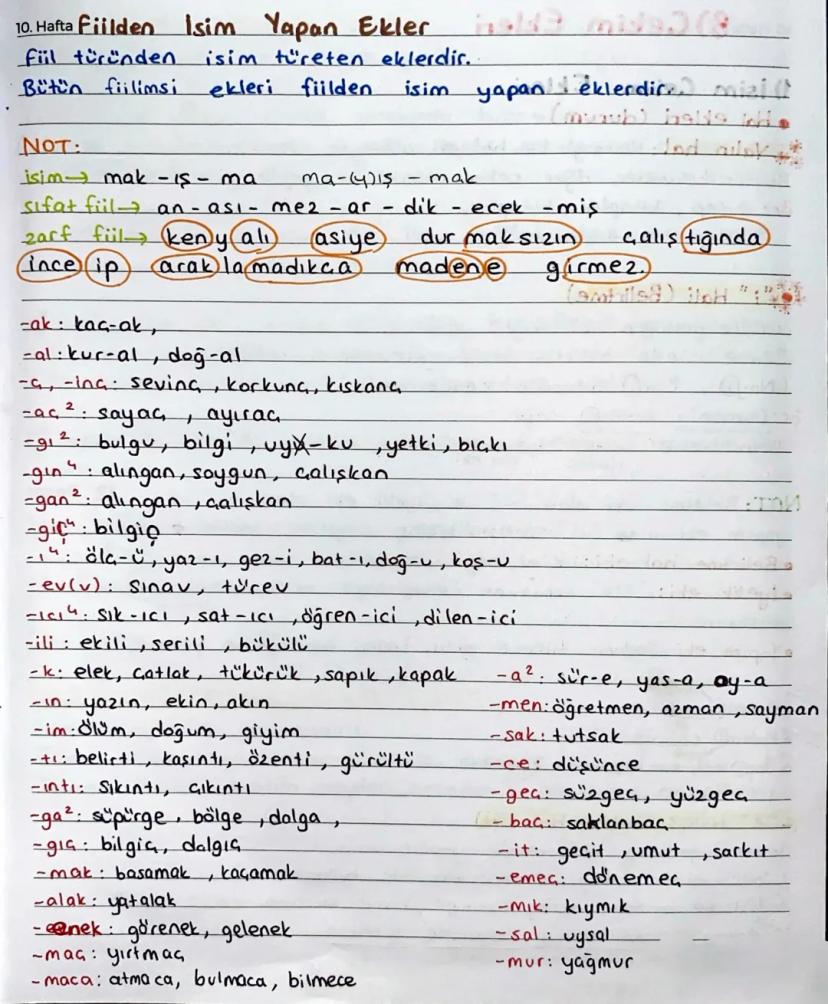 10. Hafta Fiilden İsim Yapan Ekler
Fiil türünden isim türeten eklerdir.
Bütün fiilimsi ekleri fiilden isim yapan eklerdir.
NOT:
isim→ mak - ış - ma ma-(y)ış - mak
sıfat fiil→ an - ası - mez - ar - dik - ecek - miş
zarf fiil→ ken y alı asiye dur maksızın çalış tığında
ince ip arak la madıkça madene girmez.
-ak: kaç-ak,
-al: kur-al, doğ-al
-ç, -inç: sevinç, korkunç, kıskanç
-aç²: sayaç, ayıraç
-gı²: bulgu, bilgi, uy-ku, yetki, bıçkı
-gın⁴: alıngan, soygun, çalışkan
-gan²: alıngan, çalışkan
-giç⁴: bilgiç
-ı⁴: ölç-ü, yaz-ı, gez-i, bat-ı, doğ-u, koş-u
-ev(v): sınav, türev
-ıcı⁴: sık-ıcı, sat-ıcı, öğren-ici, dilen-ici
-ili: ekili, serili, bükülü
-k: elek, çatlak, tükürük, sapık, kapak
-ın: yazın, ekin, akın
-im: ölüm, doğum, giyim
-tı: belirti, kaşıntı, özenti, gürültü
-ıntı: sıkıntı, çıkıntı
-ga²: süpürge, bölge, dalga,
-gıç: bilgiç, dalgıç
-mak: basamak, kaçamak
-alak: yatalak
-enek: görenek, gelenek
-maç: yırtmaç
-maca: atmaca, bulmaca, bilmece
-a²: sür-e, yas-a, oy-a
-men: öğretmen, azman, sayman
-sak: tutsak
-ce: düşünce
-geç: süzgeç, yüzgeç
-baç: saklanbaç
-it: geçit, umut, sarkıt
-emeç: dönemeç
-mık: kıymık
-sal: uysal
-mur: yağmur